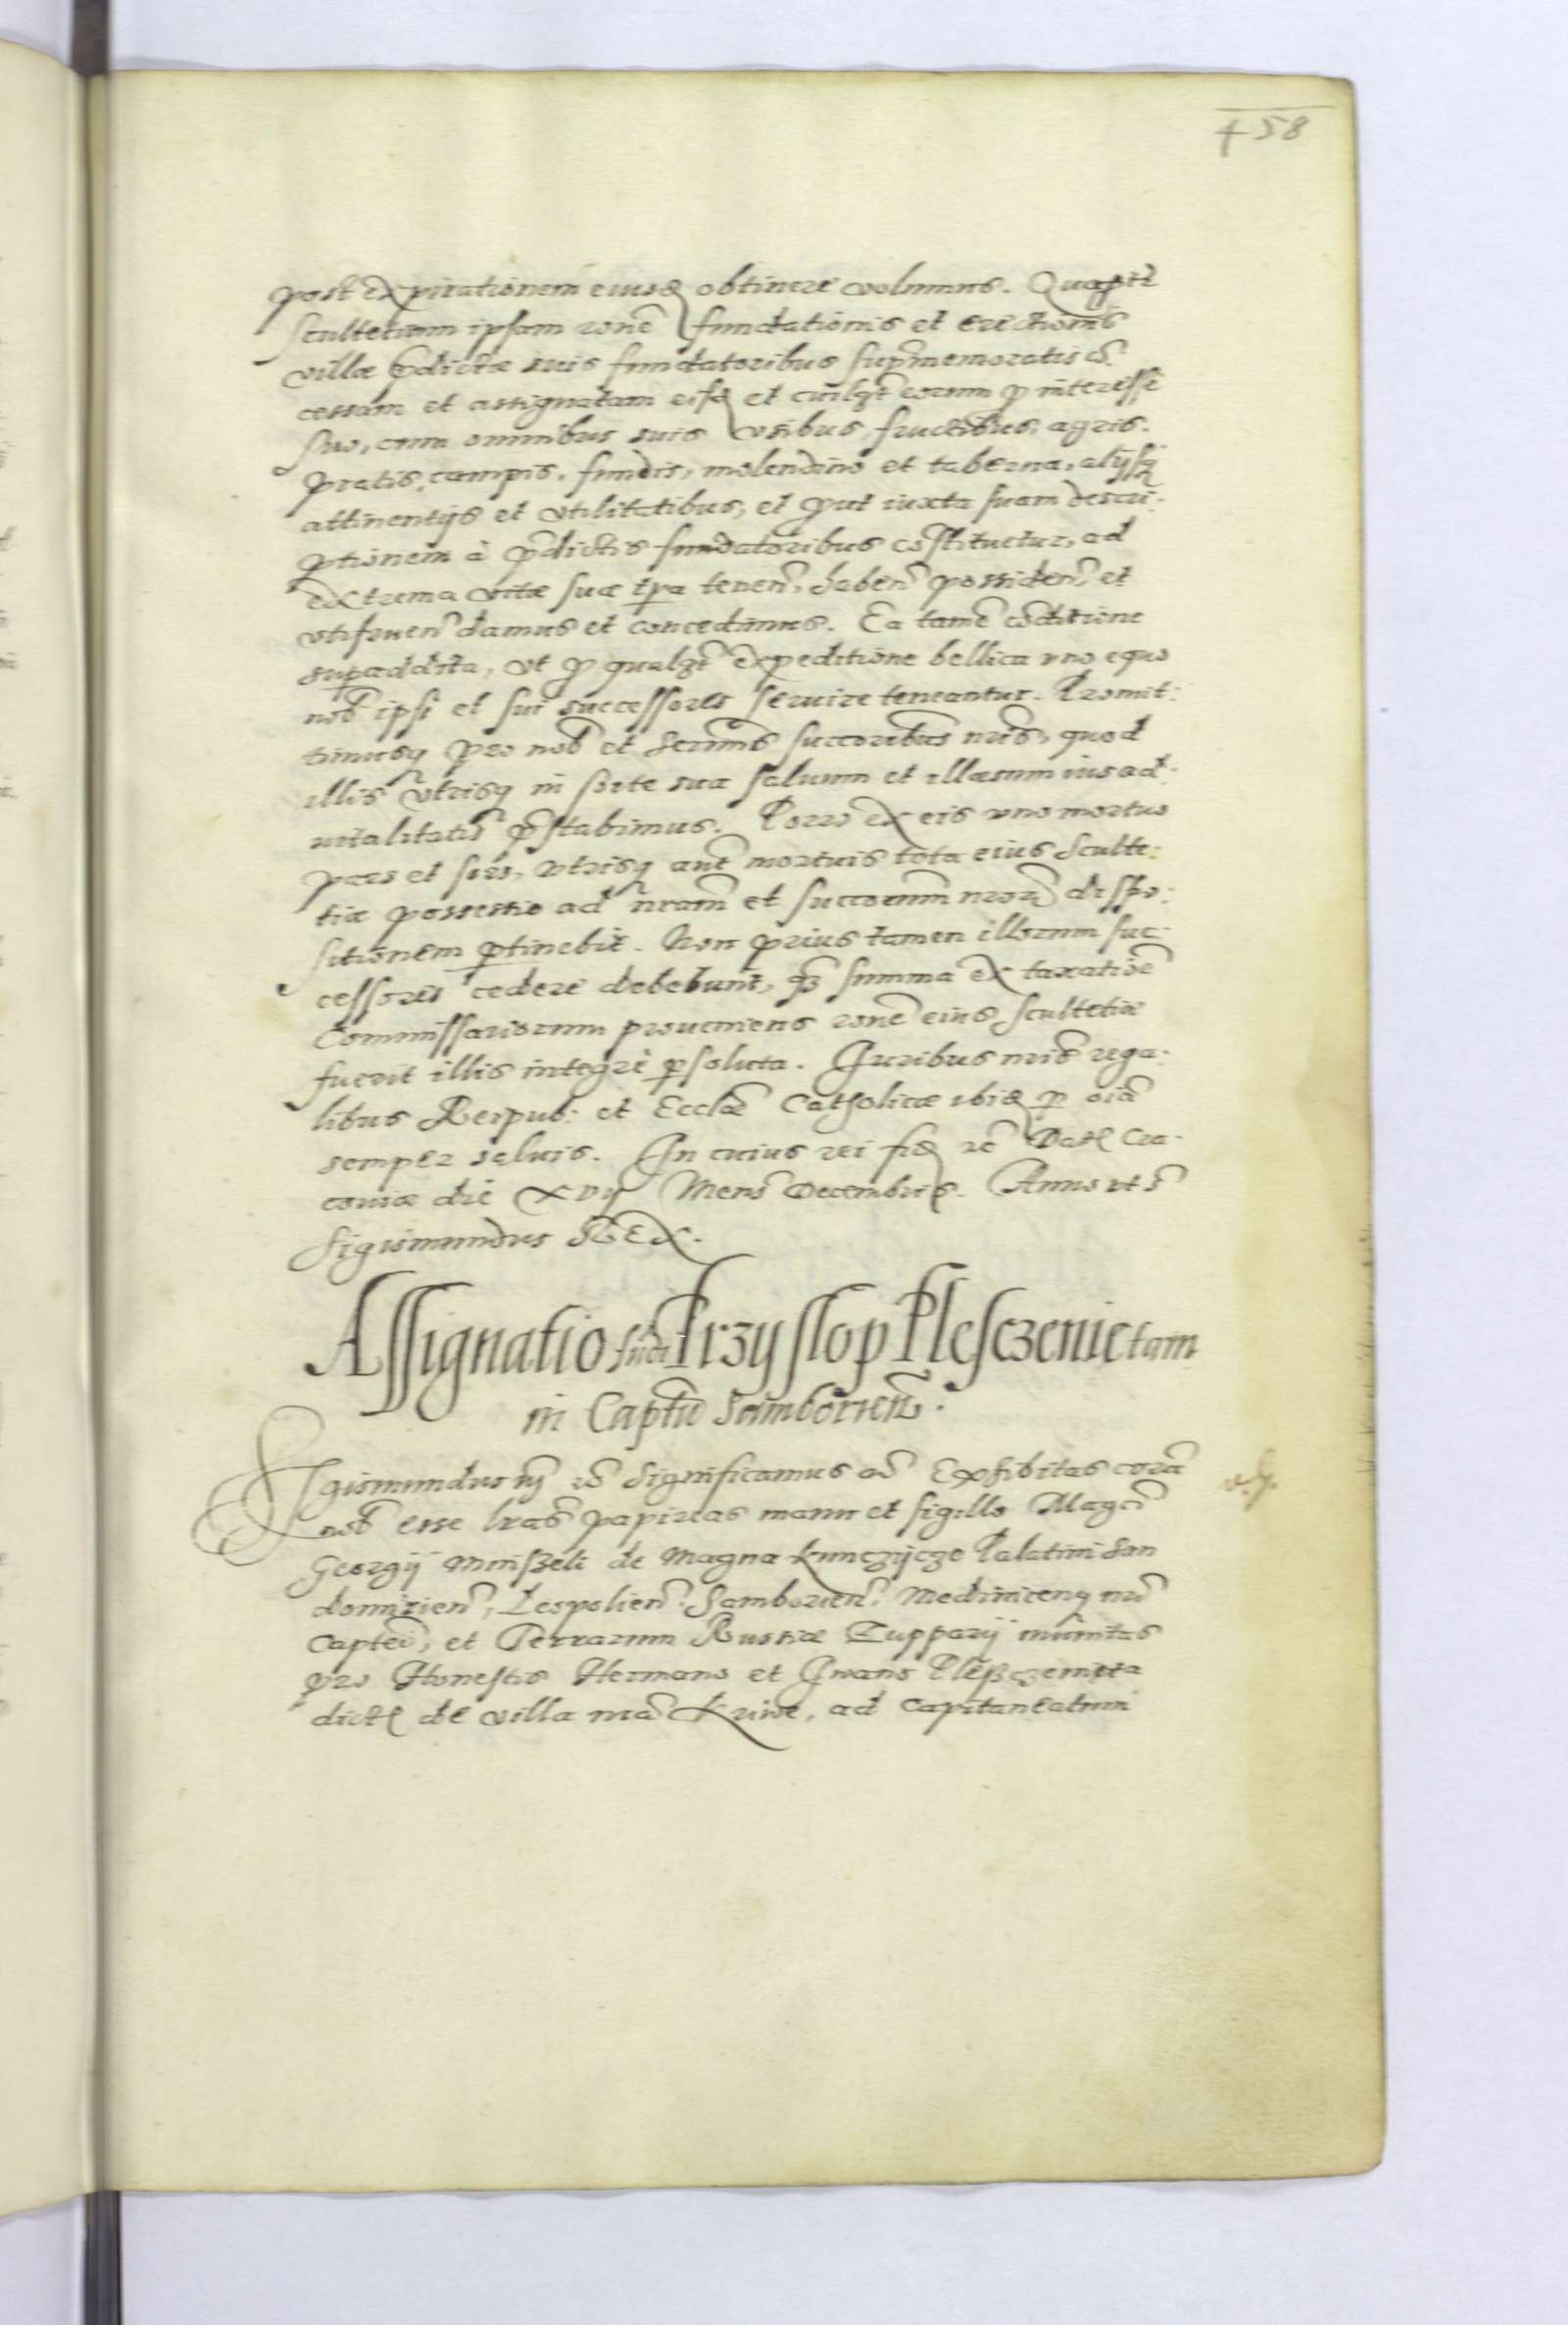 458
post expirationem eiusd obtinere volumus. Quapte
scultetiam ipsam rone fundationis et erectionis
villæ pdictæ suis fundatoribus supmemoratis co:
cessam et assignatam eisd et cuilgt eorum p interesse
suo, cum omnibus suis vsibus, fructibus, agris.
pratis, campis, fundis, molendino et taberna, alijsq
attinentijs et vtilitatibus, et put iuxta suam descri:
ptionem à pdictis fundatoribus costituetur, ad
extrema vitæ suæ tpa tenen, haben possiden, et
vtifruen damus et concedimus. Ea tame coditione
supaddita, vt p qualgt expeditione bellica vno equo
nob ipsi et sui successores seruire teneantur. Promit:
timusq pro nob et Serenmis succoribus nris, quod
illis vtrisq in sorte sua saluum et illæsum ius ad:
uitalitatis pstabimus. Porro ex eis vno mortuo
pars et sors, vtrisq aut mortuis tota eius sculte:
tiæ possessio ad nram et succorum nror dispo:
sitionem ptinebit. Non prius tamen illorum suc:
cessores cedere debebunt, qz summa ex taxatione
Commissariorum proueniens rone eius scultetiæ
fuerit illis integrè psoluta. Iuribus nris rega:
libus Reipub: et Ecclæ Catholicæ ibid p oia
semper saluis. In cuius rei fid rc Dat Cra:
couiæ die XVij Mens Decembris. Anno vt s
Sigismundus REX.
Assignatio fudi Przysłop Plesczenie tam
in Captu Samborien.
Sigismundus iij rc Significamus rc Exhibitas cora
nob esse lras papireas manu et sigillo Magci
Georgij Mniszeli de Magna kunczycze Palatini San
domirien, Leopolien. Samborien. Mediniceng nri
Captei, et Terrarum Russiæ Zupparij munitas
pro Honestis Hermano et Iwano Plesczenieta
dict de villa nra Kriwe, ad Capitaneatum